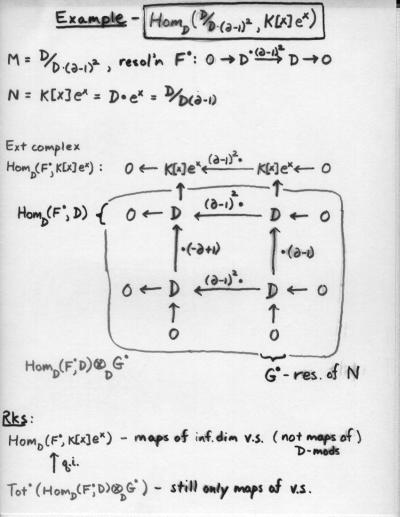 Example - Hom_D(D/D·(∂-1)², K[x]eˣ)
M = D/D·(∂-1)², resol'n F•: 0 → D •(∂-1)²→ D → 0
N = K[x]eˣ = D•eˣ = D/D(∂-1)
Ext complex
Hom_D(F•, K[x]eˣ): 0 ← K[x]eˣ ←(∂-1)²• K[x]eˣ ← 0
Hom_D(F•, D) { 0 ← D ←(∂-1)²• D ← 0
↑ •(-∂+1) ↑ •(∂-1)
0 ← D ←(∂-1)²• D ← 0
↑ ↑
0 0
Hom_D(F•, D) ⊗_D G•
G• - res. of N
Rks:
Hom_D(F•, K[x]eˣ) - maps of inf. dim v.s. (not maps of)
D-mods
↑ q.i.
Tot•(Hom_D(F•, D) ⊗_D G•) - still only maps of v.s.